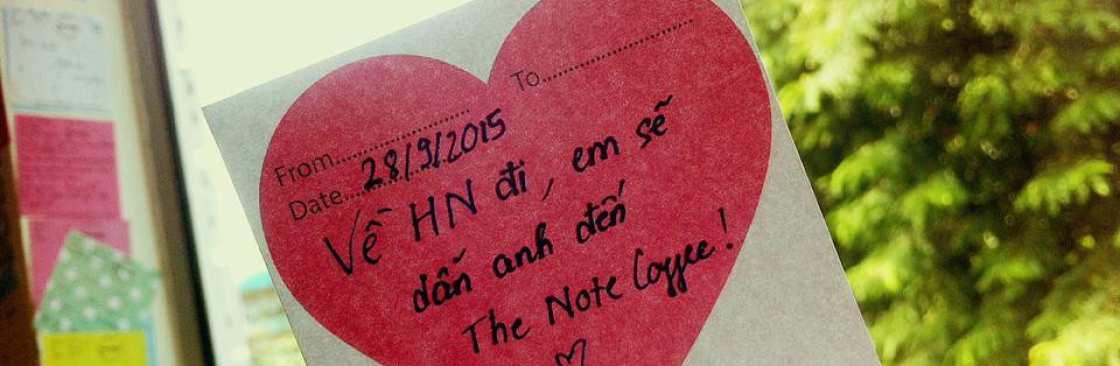 From....................
To....................
Date.... 28/9/2015
Về HN đi, em sẽ
dẫn anh đến
The Note Coffee!